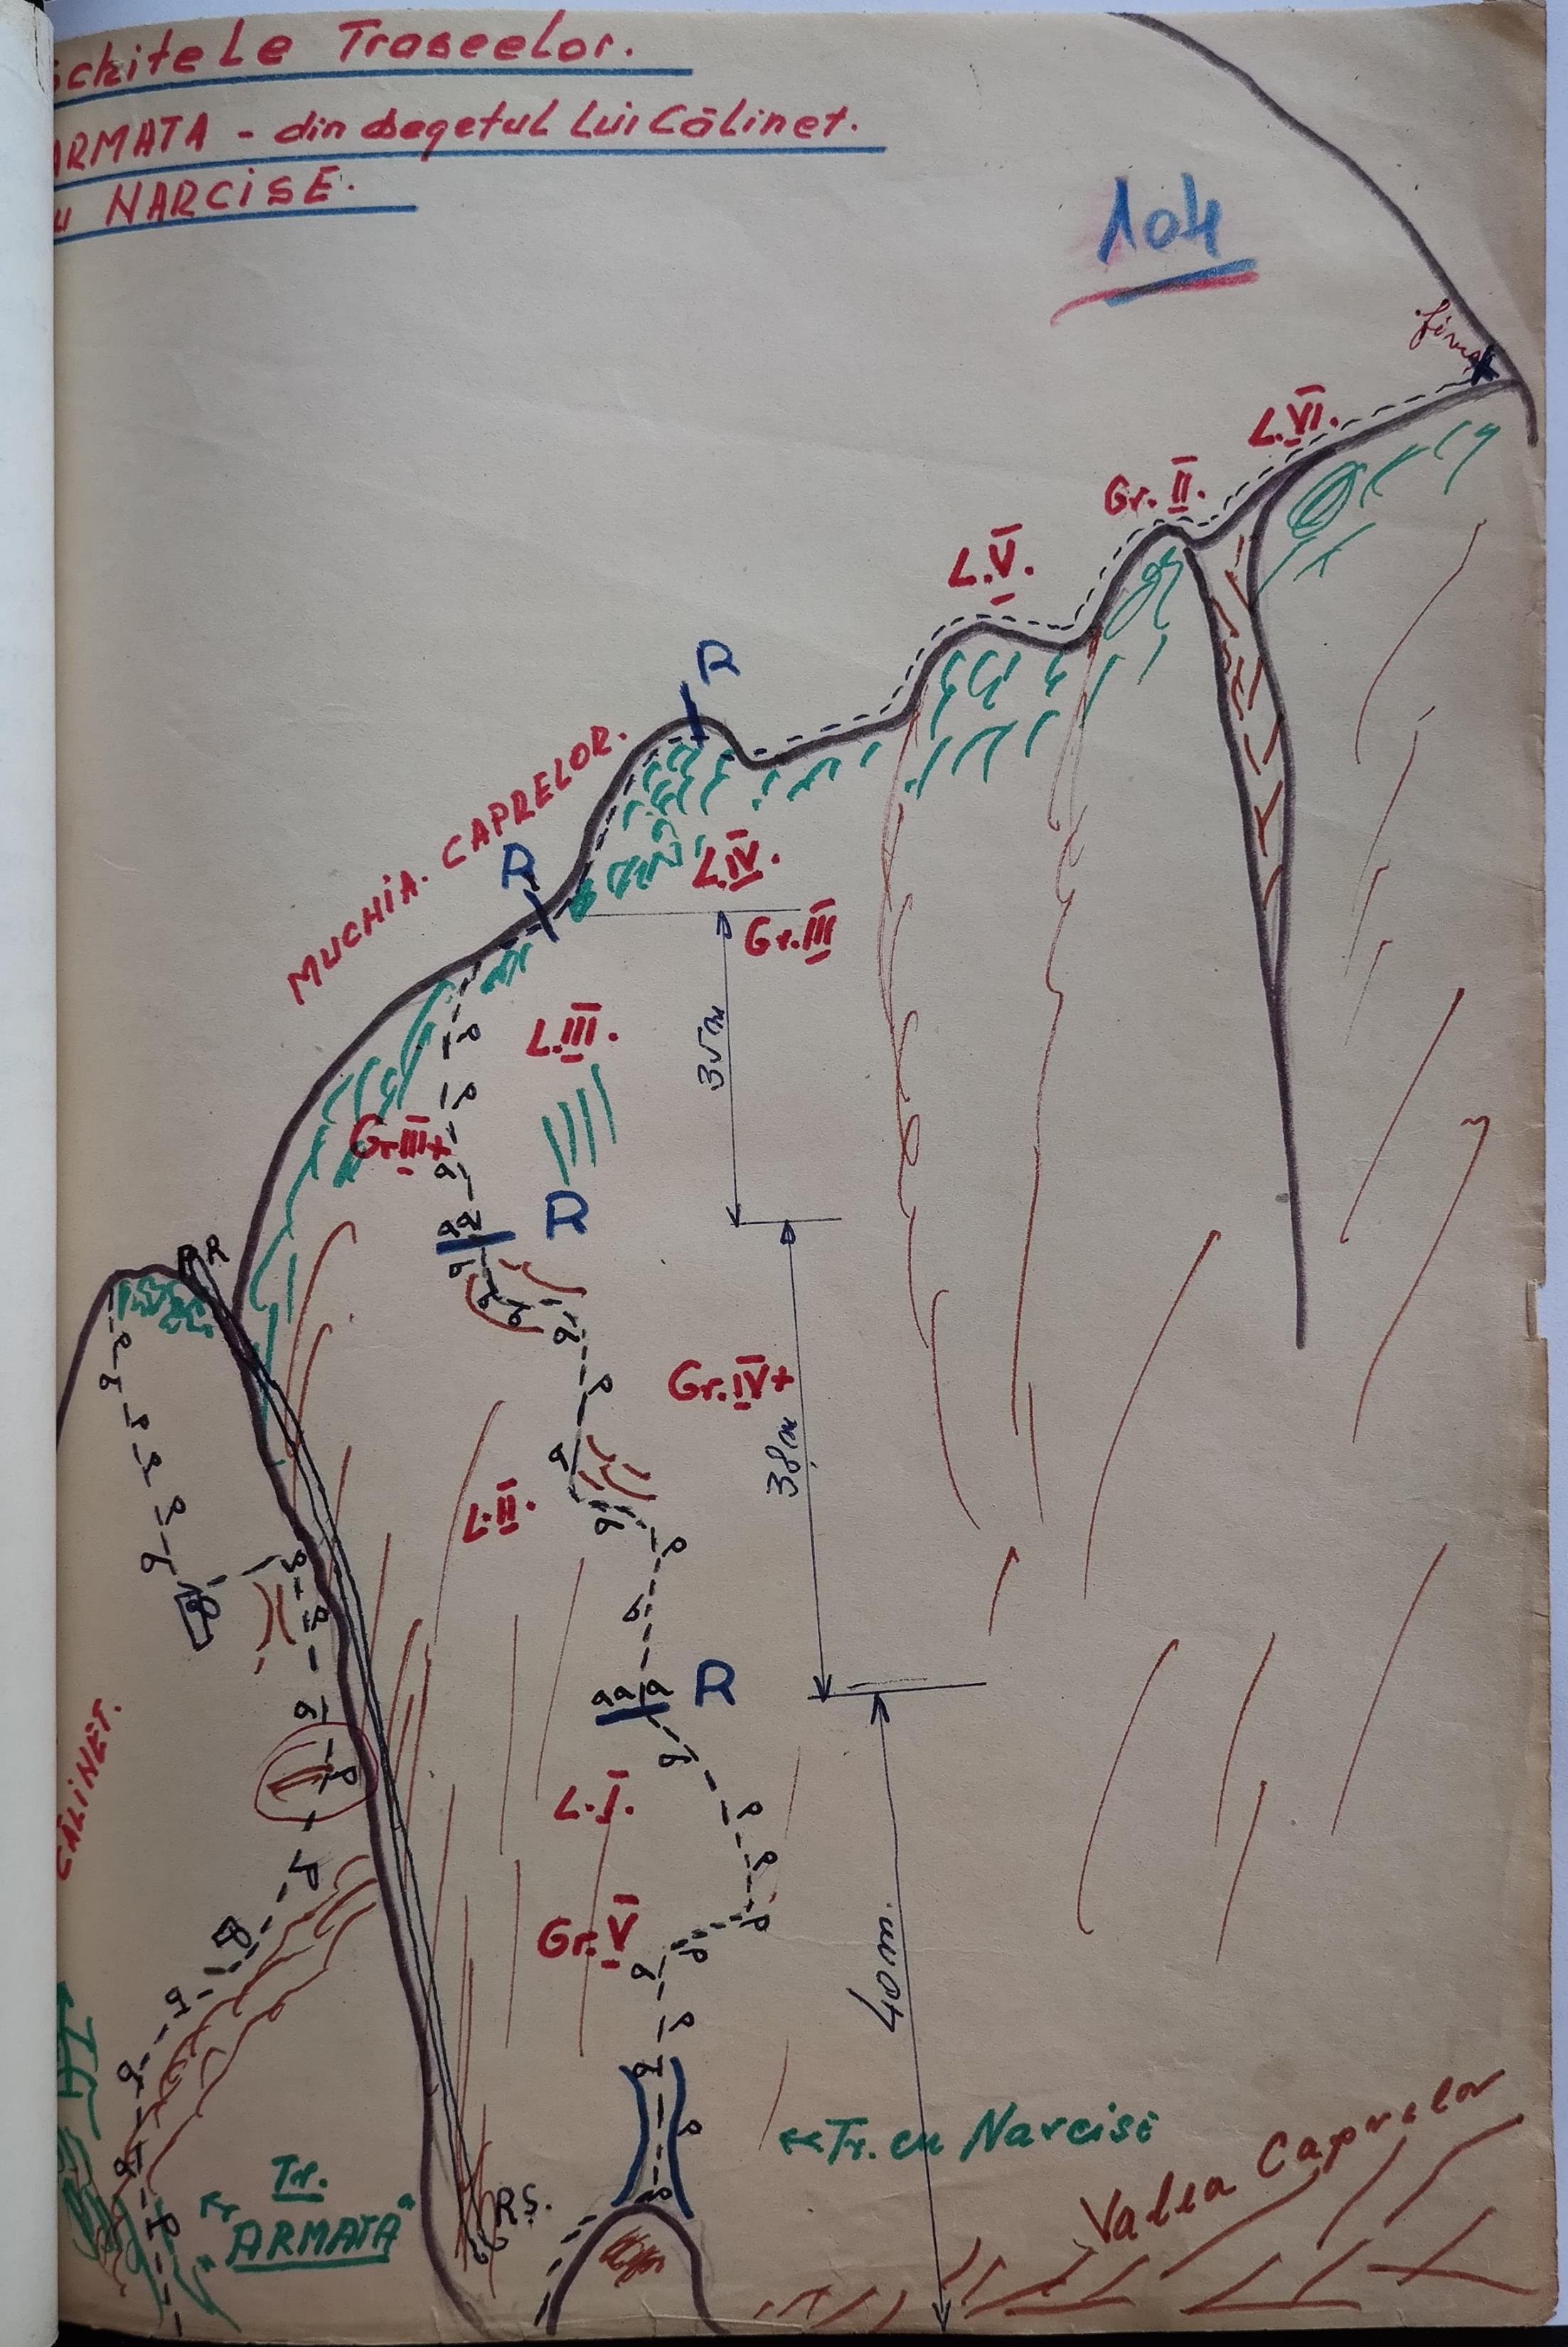 schitele Traseelor.
ARMATA - din degetul Lui Călineț.
u NARCISE.
104
final
L.VI.
Gr. II.
L.V.
R
MUCHIA. CAPRELOR.
R
L.IV.
Gr.III
L.III.
35m
Gr.III+
R
R
Gr.IV+
38m
L.II.
R
CĂLINEȚ.
L.I.
Gr.V
40m.
Tr. cu Narcise
Valea Caprelor
Tr.
"ARMATA"
R.S.